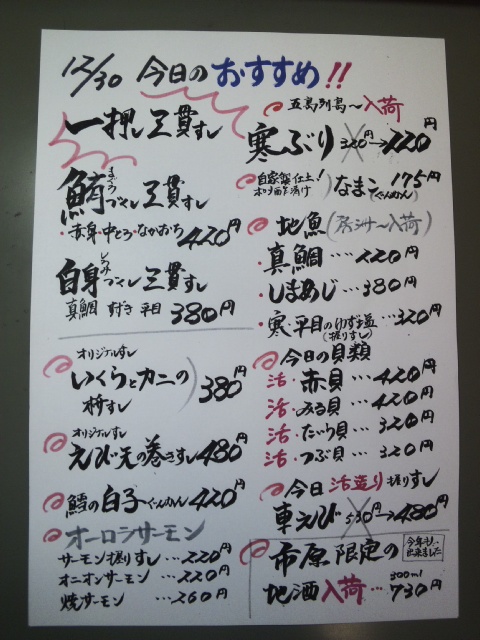 12/30 今日のおすすめ!!
一押し三貫すし
鮪づくし三貫すし
まぐろ
・赤身・中とろ・なかおち 420円
白身づくし三貫すし
しろみ
真鯛 すずき 平目 380円
オリジナルすし
いくらとカニの
380円
オリジナルすし
えび天の巻きすし 480円
鱈の白子ぐんかん 420円
オーロラサーモン
サーモン握りすし…220円
オニオンサーモン…220円
焼サーモン…260円
五島列島〜入荷
寒ぶり 320円→220円
自家製仕上!
ポン酢漬け
なまこ 175円
(ぐんかん)
地魚(房州〜入荷)
・真鯛…220円
・しまあじ…380円
・寒平目のゆず塩…320円
(握りすし)
今日の貝類
活・赤貝…420円
活・みる貝…420円
活・たいら貝…320円
活・つぶ貝…320円
今日活造り握りすし
車えび 530円→480円
市原限定の
今年も
出来ました
地酒入荷…730円
300ml